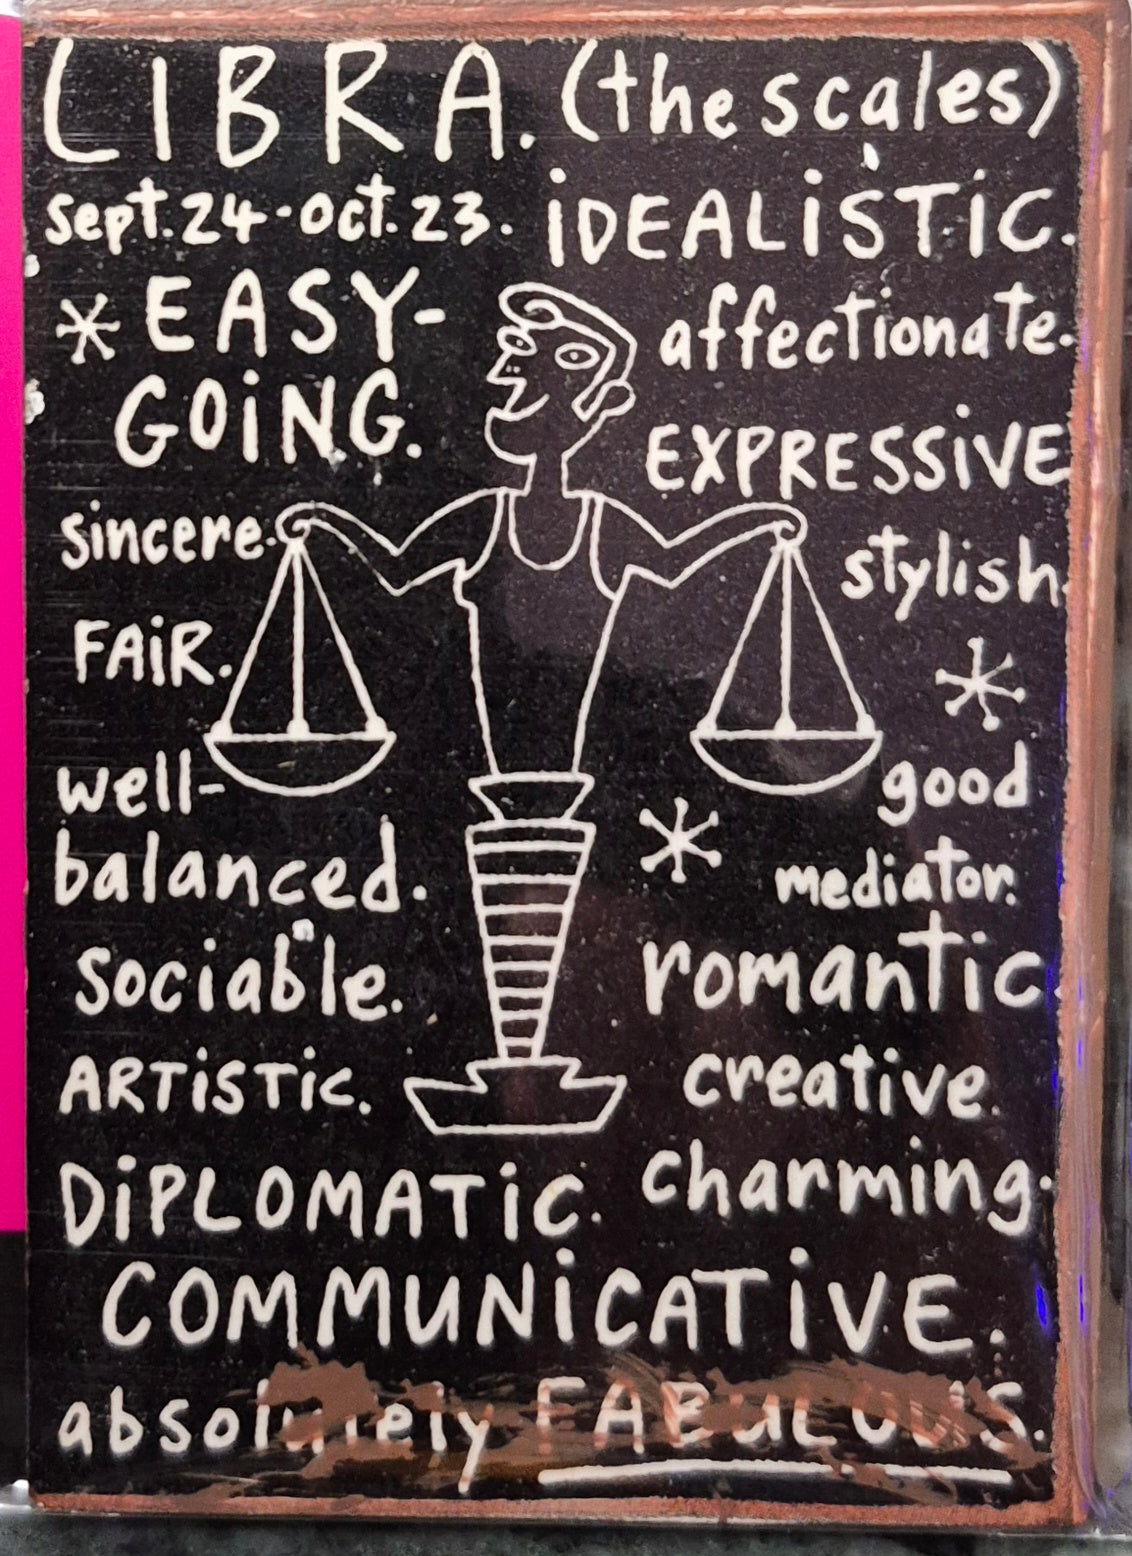 LIBRA. (the scales)
sept. 24 - oct. 23.
iDEALiSTiC.
EASY-
GOiNG.
affectionate.
EXPRESSiVE
sincere.
stylish.
FAiR.
well-
balanced.
good
mediator.
sociable.
romantic.
ARTiSTiC.
creative.
DiPLOMATiC.
charming.
COMMUNiCATiVE.
absolutely FABULOUS.